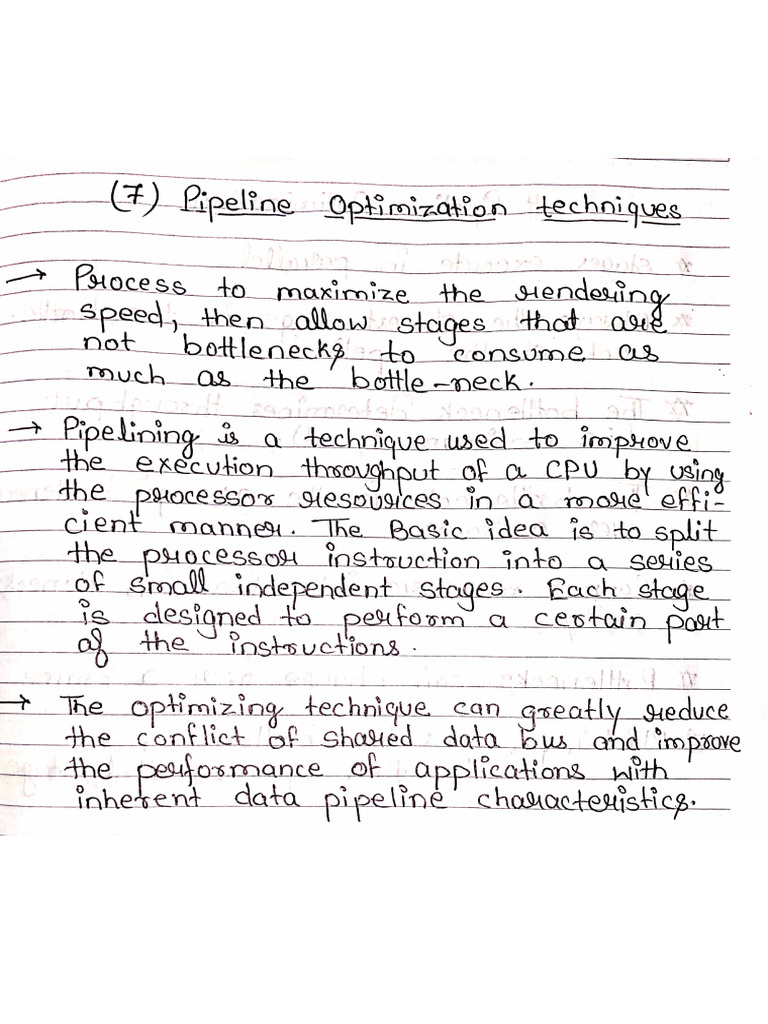 (7) Pipeline Optimization techniques
→ Process to maximize the rendering
speed, then allow stages that are
not bottlenecks to consume as
much as the bottle-neck.
→ Pipelining is a technique used to improve
the execution throughput of a CPU by using
the processor resources in a more effi-
cient manner. The Basic idea is to split
the processor instruction into a series
of small independent stages. Each stage
is designed to perform a certain part
of the instructions.
→ The optimizing technique can greatly reduce
the conflict of shared data bus and improve
the performance of applications with
inherent data pipeline characteristics.